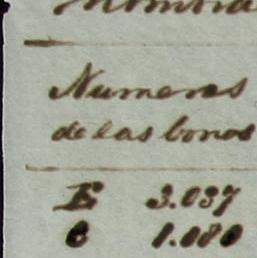 Numeros
de las bonos
E 3.037
C 1.080